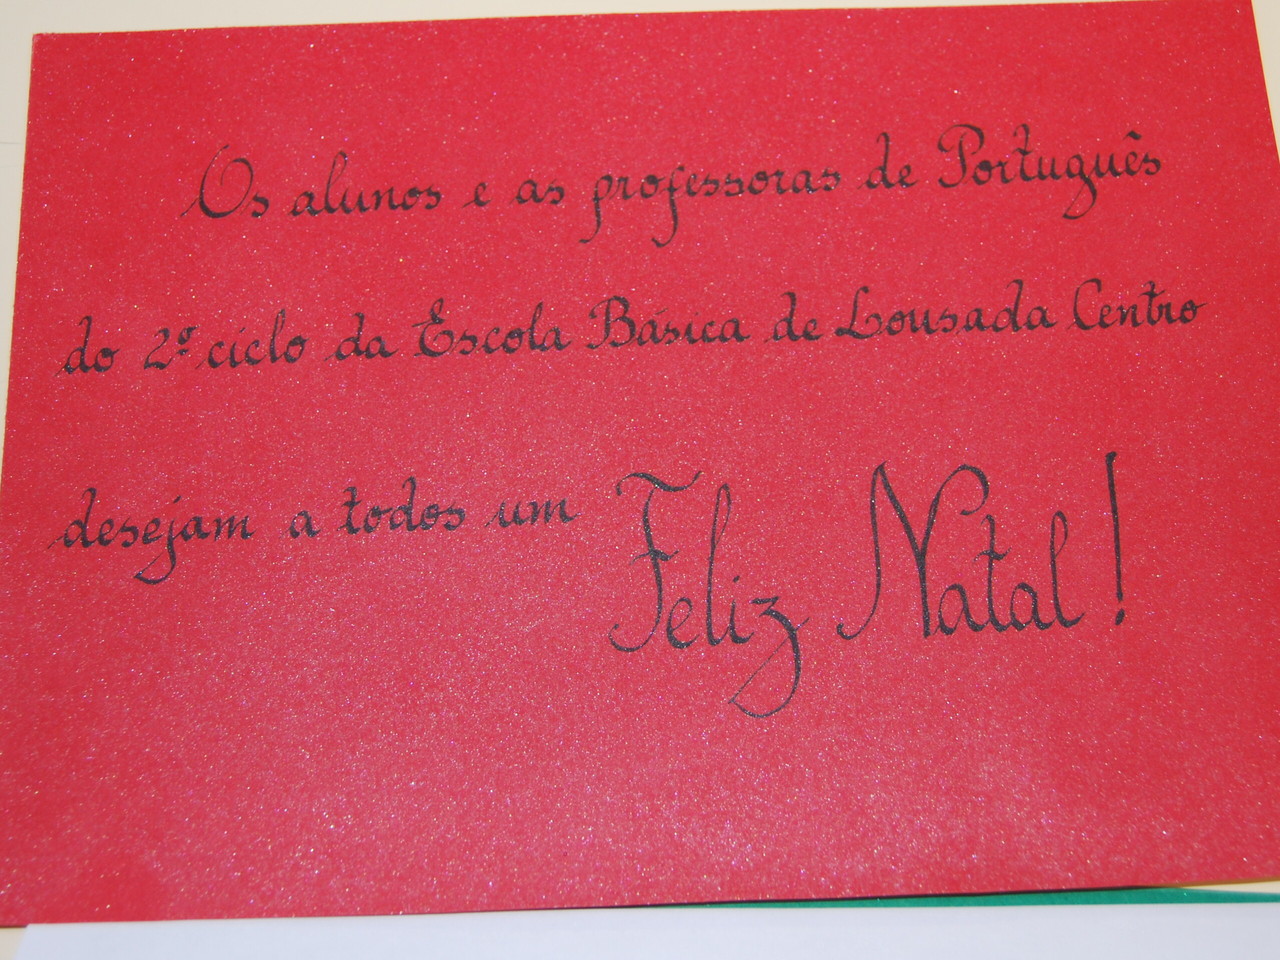 Os alunos e as professoras de Português
do 2º ciclo da Escola Básica de Lousada Centro
desejam a todos um Feliz Natal!